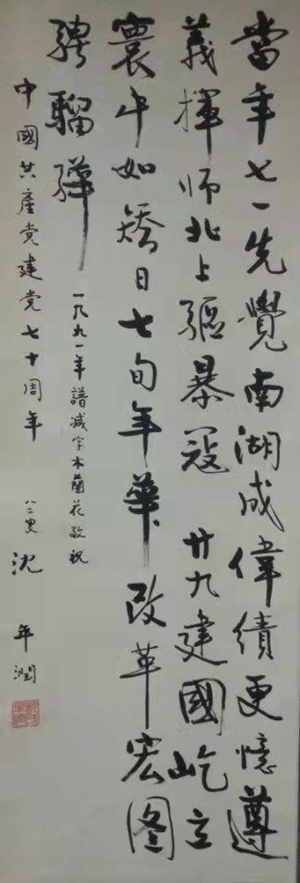 當年七一先覺南湖成偉績更憶遵
義揮師北上驅暴寇廿九建國屹立
寰中如矯日七旬年華改革宏图
騁騮驊
一九九一年譜减字木蘭花敬祝
中國共產党建党七十周年 八二叟 沈年潤